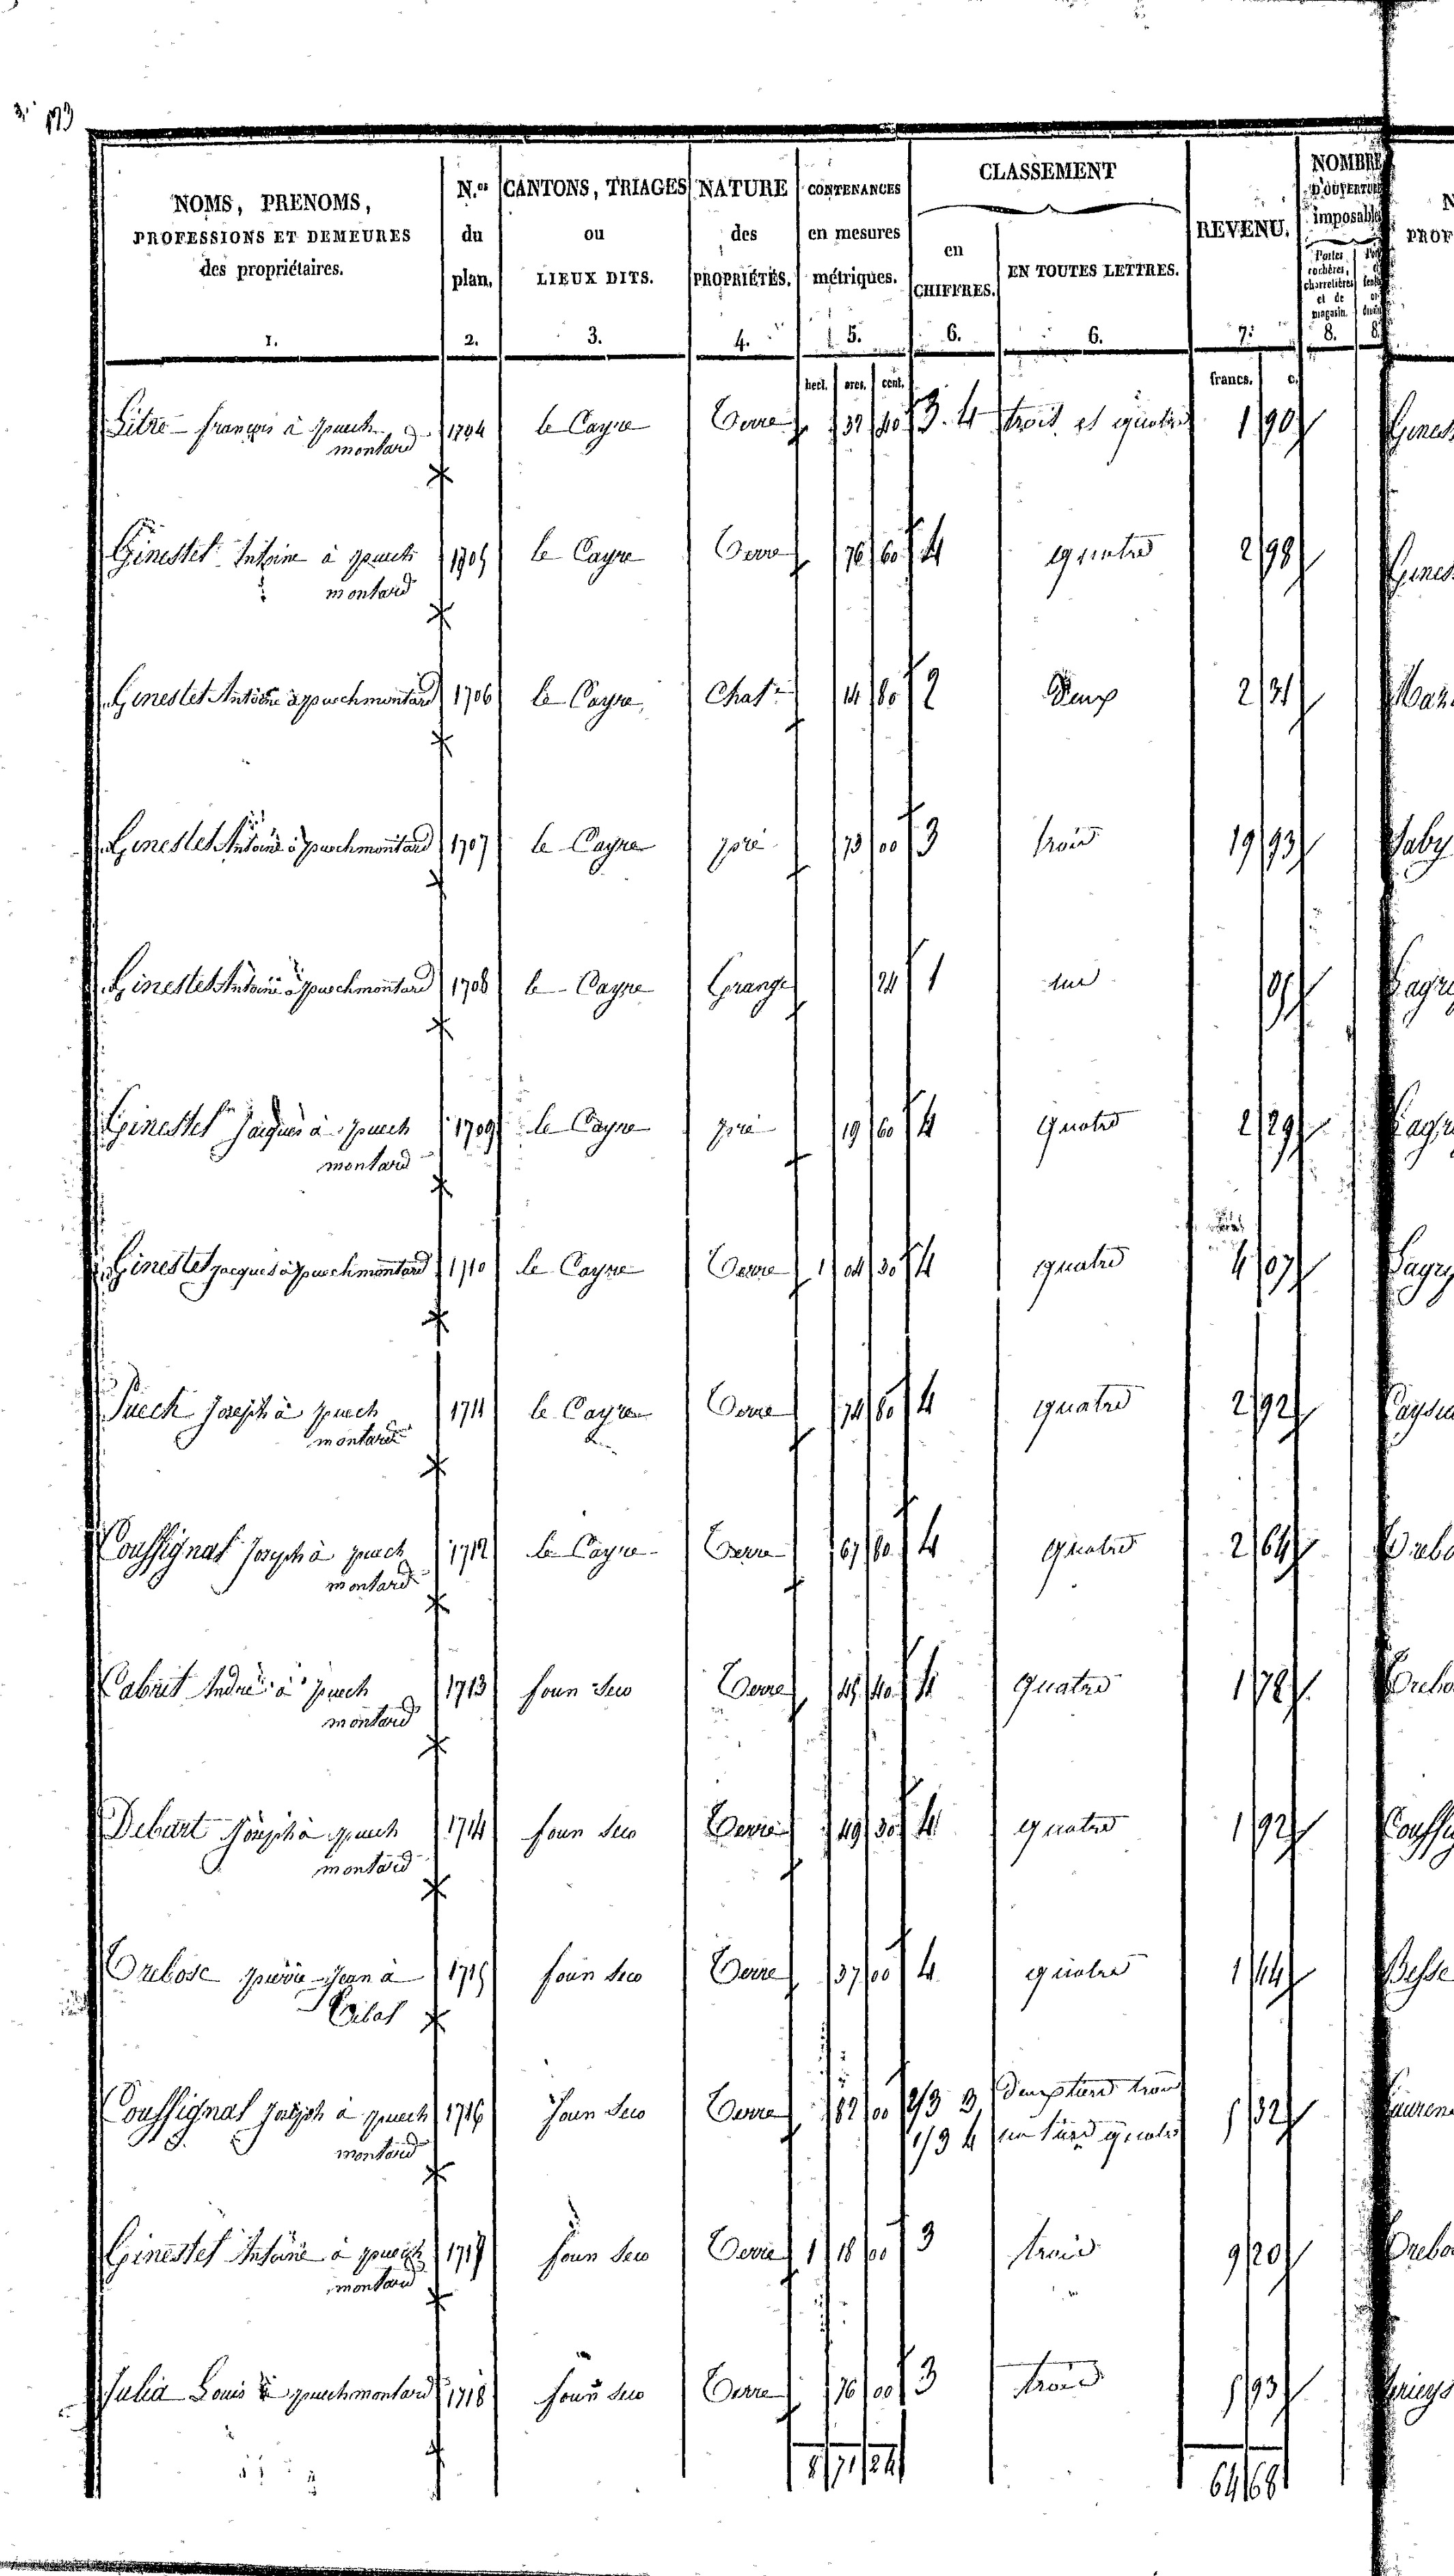 173
NOMS, PRENOMS,
PROFESSIONS ET DEMEURES
des propriétaires.
1.
N.os
du
plan.
2.
CANTONS, TRIAGES
ou
LIEUX DITS.
3.
NATURE
des
PROPRIÉTÉS.
4.
CONTENANCES
en mesures
métriques.
5.
CLASSEMENT
en
CHIFFRES.
6.
EN TOUTES LETTRES.
6.
REVENU.
7.
NOMBRE
D'OUVERTURE
imposable
Portes
cochères,
charretières
et de
magasin.
8.
8.
hect. ares. cent. francs. c.
françois à puech 1704 le Cayre Terre 32 40 3. 4 trois et quatre 1 90
montard
Ginestet Antoine à puech 1705 le Cayre Terre 76 60 4 quatre 2 98
montard
Ginestet Antoine à puechmontard 1706 le Cayre Chat 14 80 2 Deux 2 31
Ginestet Antoine à puechmontard 1707 le Cayre pré 73 00 3 trois 19 93
Ginestet Antoine à puechmontard 1708 le Cayre Grange 24 1 une
Ginestet Jacques à puech 1709 le Cayre pré 19 60 4 quatre 2 29
montard
Ginestet jacques à puechmontard 1710 le Cayre Terre 1 04 30 4 quatre 4 07
Puech Joseph à puech 1711 le Cayre Terre 74 80 4 quatre 2 92
montard
Couffignal Joseph à puech 1712 le Cayre Terre 67 80 4 quatre 2 64
montard
Cabrit André à puech 1713 foun Seco Terre 45 40 4 quatre 1 78
montard
Debart Joseph à puech 1714 foun Seco Terre 49 30 4 quatre 1 92
montard
Trebosc pierre-Jean à 1715 foun Seco Terre 37 00 4 quatre 1 44
Couffignal Joseph à puech 1716 foun Seco Terre 82 00 2/3 3 Deux tiers trois 5 32
montard 1/3 4 un tiers quatre
Ginestet Antoine à puech 1717 foun Seco Terre 1 18 00 3 trois 9 20
montard
Julia Louis à puechmontard 1718 foun Seco Terre 76 00 3 trois 5 93
8 71 24 64 68